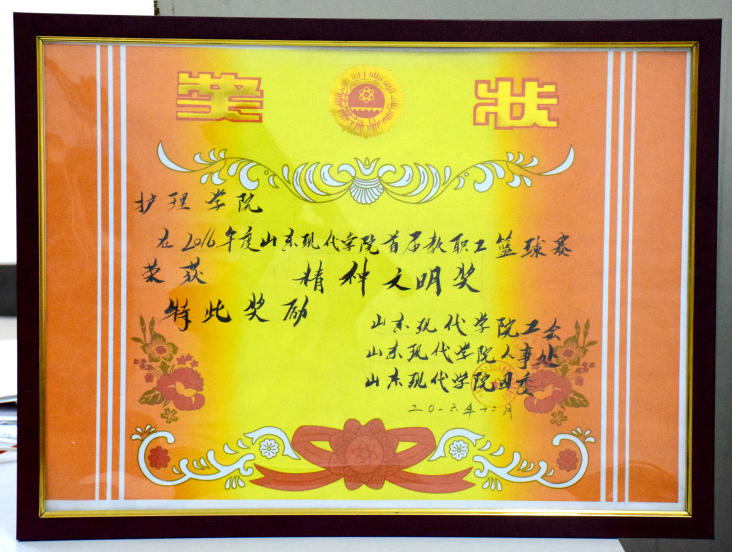 奖 状
护理学院
在2016年度山东现代学院首届教职工篮球赛
荣获 精神文明奖
特此奖励
山东现代学院工会
山东现代学院人事处
山东现代学院团委
二〇一六年十二月